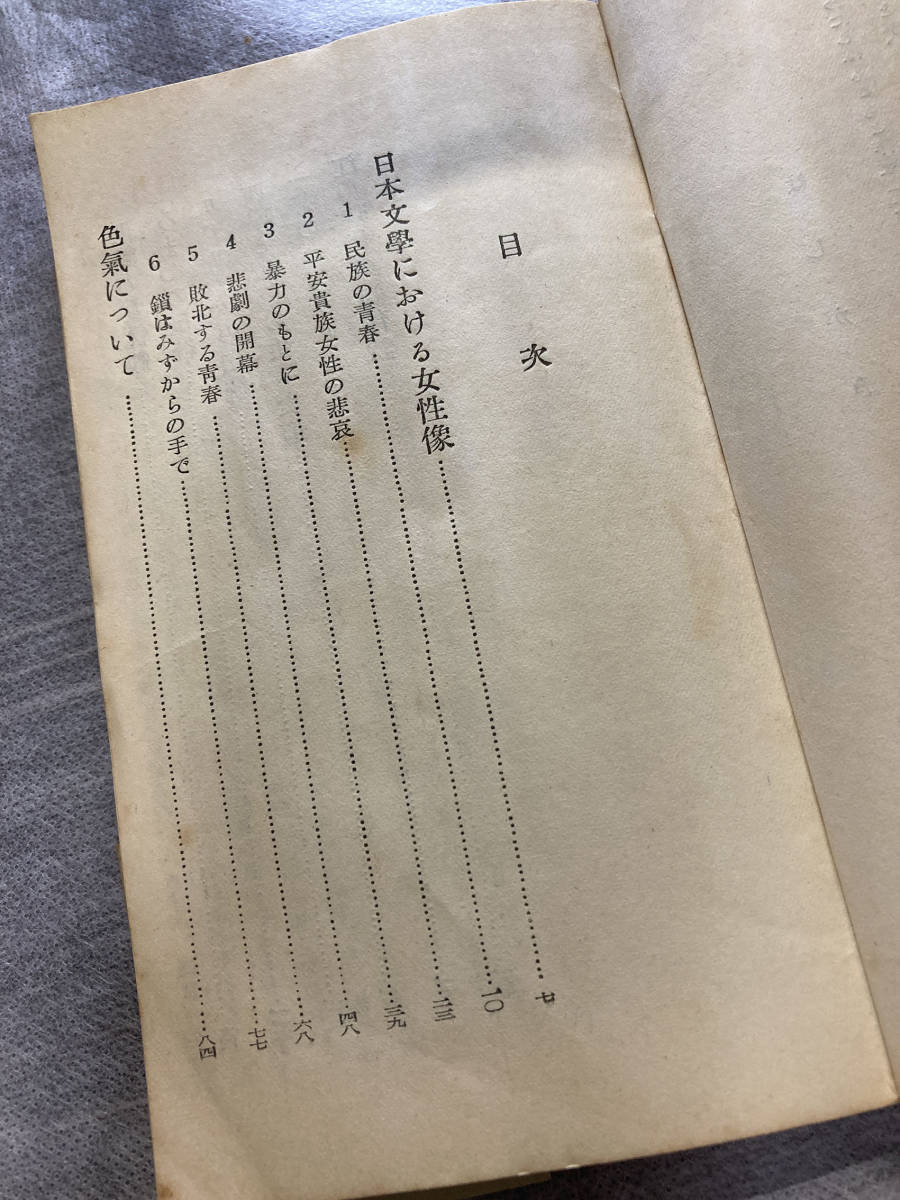 目次
日本文學における女性像……七
1 民族の青春……一〇
2 平安貴族女性の悲哀……二三
3 暴力のもとに……三九
4 悲劇の開幕……四八
5 敗北する青春……六八
6 鎖はみずからの手で……七七
色氣について……八四